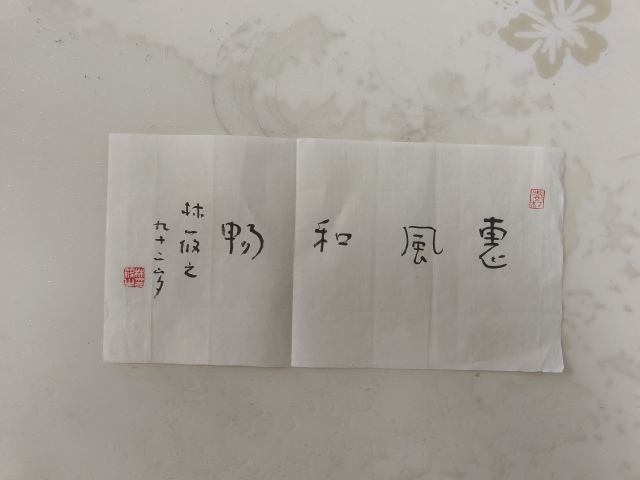 惠風和暢
林筱之
九十二岁